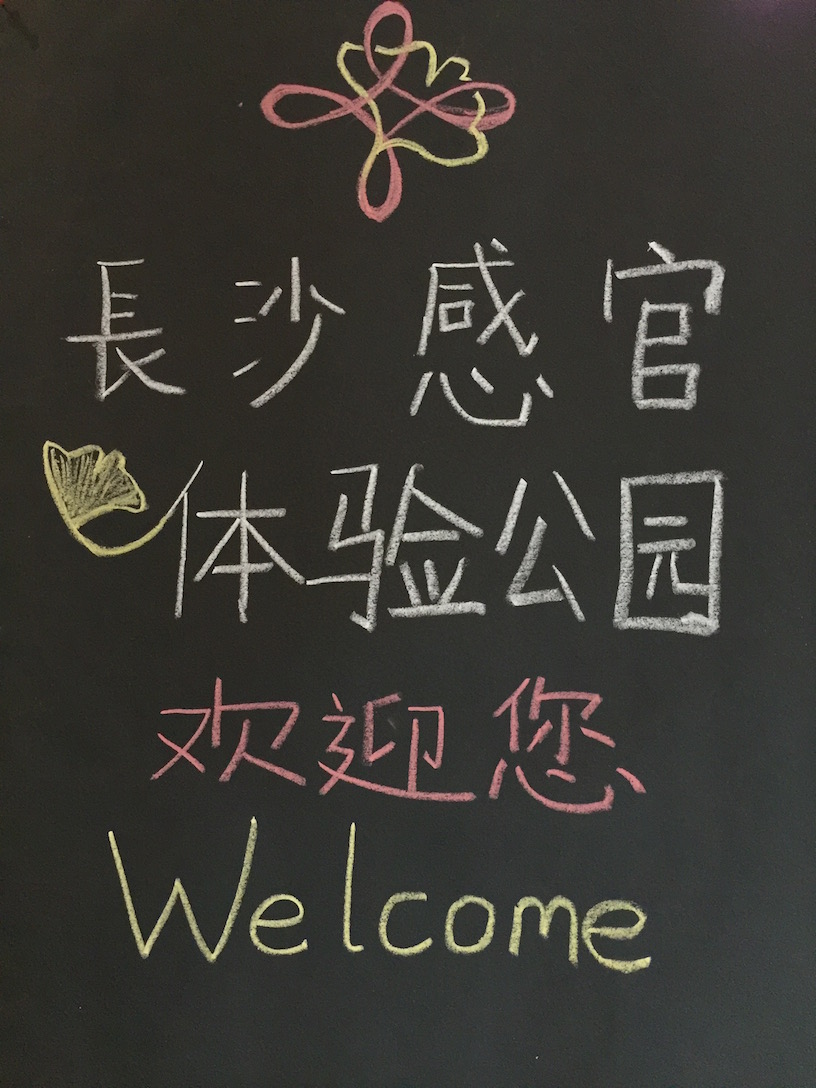 長沙感官
体验公园
欢迎您
Welcome